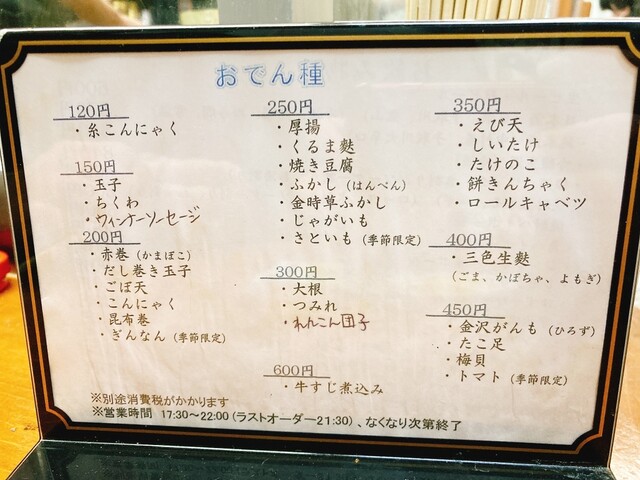 おでん種
120円
・糸こんにゃく
150円
・玉子
・ちくわ
・ウィンナーソーセージ
200円
・赤巻（かまぼこ）
・だし巻き玉子
・ごぼ天
・こんにゃく
・昆布巻
・ぎんなん（季節限定）
250円
・厚揚
・くるま麩
・焼き豆腐
・ふかし（はんぺん）
・金時草ふかし
・じゃがいも
・さといも（季節限定）
300円
・大根
・つみれ
・れんこん団子
600円
・牛すじ煮込み
350円
・えび天
・しいたけ
・たけのこ
・餅きんちゃく
・ロールキャベツ
400円
・三色生麩
（ごま、かぼちゃ、よもぎ）
450円
・金沢がんも（ひろず）
・たこ足
・梅貝
・トマト（季節限定）
※別途消費税がかかります
※営業時間 17:30～22:00（ラストオーダー21:30）、なくなり次第終了